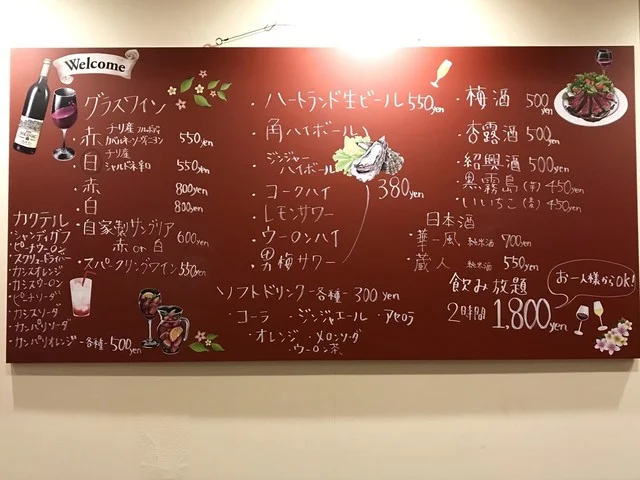 Welcome
グラスワイン
・赤 チリ産 フルボディ
カベルネ・ソーヴィニヨン 550yen
・白 チリ産
シャルドネ辛口 550yen
・赤 800yen
・白 800yen
・自家製サングリア
赤 or 白 600yen
・スパークリングワイン 550yen
カクテル
・シャンディガフ
・ピーチウーロン
・スクリュードライバー
・カシスオレンジ
・カシスウーロン
・ピーチソーダ
・カシスソーダ
・カンパリソーダ
・カンパリオレンジ -各種- 500yen
・ハートランド生ビール 550yen
・角ハイボール
・ジンジャー
ハイボール
・コークハイ
・レモンサワー
・ウーロンハイ
・男梅サワー
380yen
ソフトドリンク -各種- 300yen
・コーラ ・ジンジャエール ・アセロラ
・オレンジ ・メロンソーダ
・ウーロン茶
・梅酒 500yen
・杏露酒 500yen
・紹興酒 500yen
・黒霧島(芋) 450yen
・いいちこ(麦) 450yen
日本酒
・華一風 純米酒 700yen
・蔵人 純米酒 550yen
飲み放題
2時間 1,800yen
お一人様からOK!